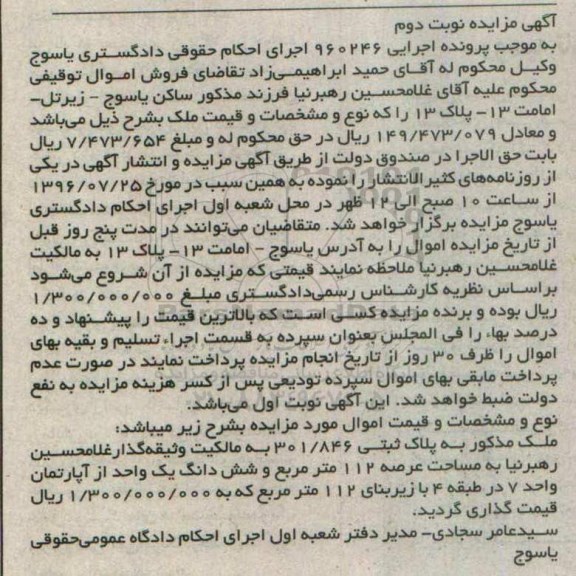 آگهی مزایده نوبت دوم
به موجب پرونده اجرایی ۹۶۰۲۴۶ اجرای احکام حقوقی دادگستری یاسوج
وکیل محکوم له آقای حمید ابراهیمی‌زاد تقاضای فروش اموال توقیفی
محکوم علیه آقای غلامحسین رهبرنیا فرزند مذکور ساکن یاسوج – زیرتل–
امامت ۱۳– پلاک ۱۳ را که نوع و مشخصات و قیمت ملک بشرح ذیل می‌باشد
و معادل ۱۴۹/۴۷۳/۰۷۹ ریال در حق محکوم له و مبلغ ۷/۴۷۳/۶۵۴ ریال
بابت حق الاجرا در صندوق دولت از طریق آگهی مزایده و انتشار آگهی در یکی
از روزنامه‌های کثیرالانتشار را نموده به همین سبب در مورخ ۱۳۹۶/۰۷/۲۵
از ساعت ۱۰ صبح الی ۱۲ ظهر در محل شعبه اول اجرای احکام دادگستری
یاسوج مزایده برگزار خواهد شد. متقاضیان می‌توانند در مدت پنج روز قبل
از تاریخ مزایده اموال را به آدرس یاسوج – امامت ۱۳– پلاک ۱۳ به مالکیت
غلامحسین رهبرنیا ملاحظه نمایند قیمتی که مزایده از آن شروع می‌شود
براساس نظریه کارشناس رسمی‌دادگستری مبلغ ۱/۳۰۰/۰۰۰/۰۰۰
ریال بوده و برنده مزایده کسی است که بالاترین قیمت را پیشنهاد و ده
درصد بهاء را فی المجلس بعنوان سپرده به قسمت اجراء تسلیم و بقیه بهای
اموال را ظرف ۳۰ روز از تاریخ انجام مزایده پرداخت نمایند در صورت عدم
پرداخت مابقی بهای اموال سپرده تودیعی پس از کسر هزینه مزایده به نفع
دولت ضبط خواهد شد. این آگهی نوبت اول می‌باشد.
نوع و مشخصات و قیمت اموال مورد مزایده بشرح زیر میباشد:
ملک مذکور به پلاک ثبتی ۳۰۱/۸۴۶ به مالکیت وثیقه‌گذارغلامحسین
رهبرنیا به مساحت عرصه ۱۱۲ متر مربع و شش دانگ یک واحد از آپارتمان
واحد ۷ در طبقه ۴ با زیربنای ۱۱۲ متر مربع که به ۱/۳۰۰/۰۰۰/۰۰۰ ریال
قیمت گذاری گردید.
سیدعامر سجادی– مدیر دفتر شعبه اول اجرای احکام دادگاه عمومی‌حقوقی
یاسوج